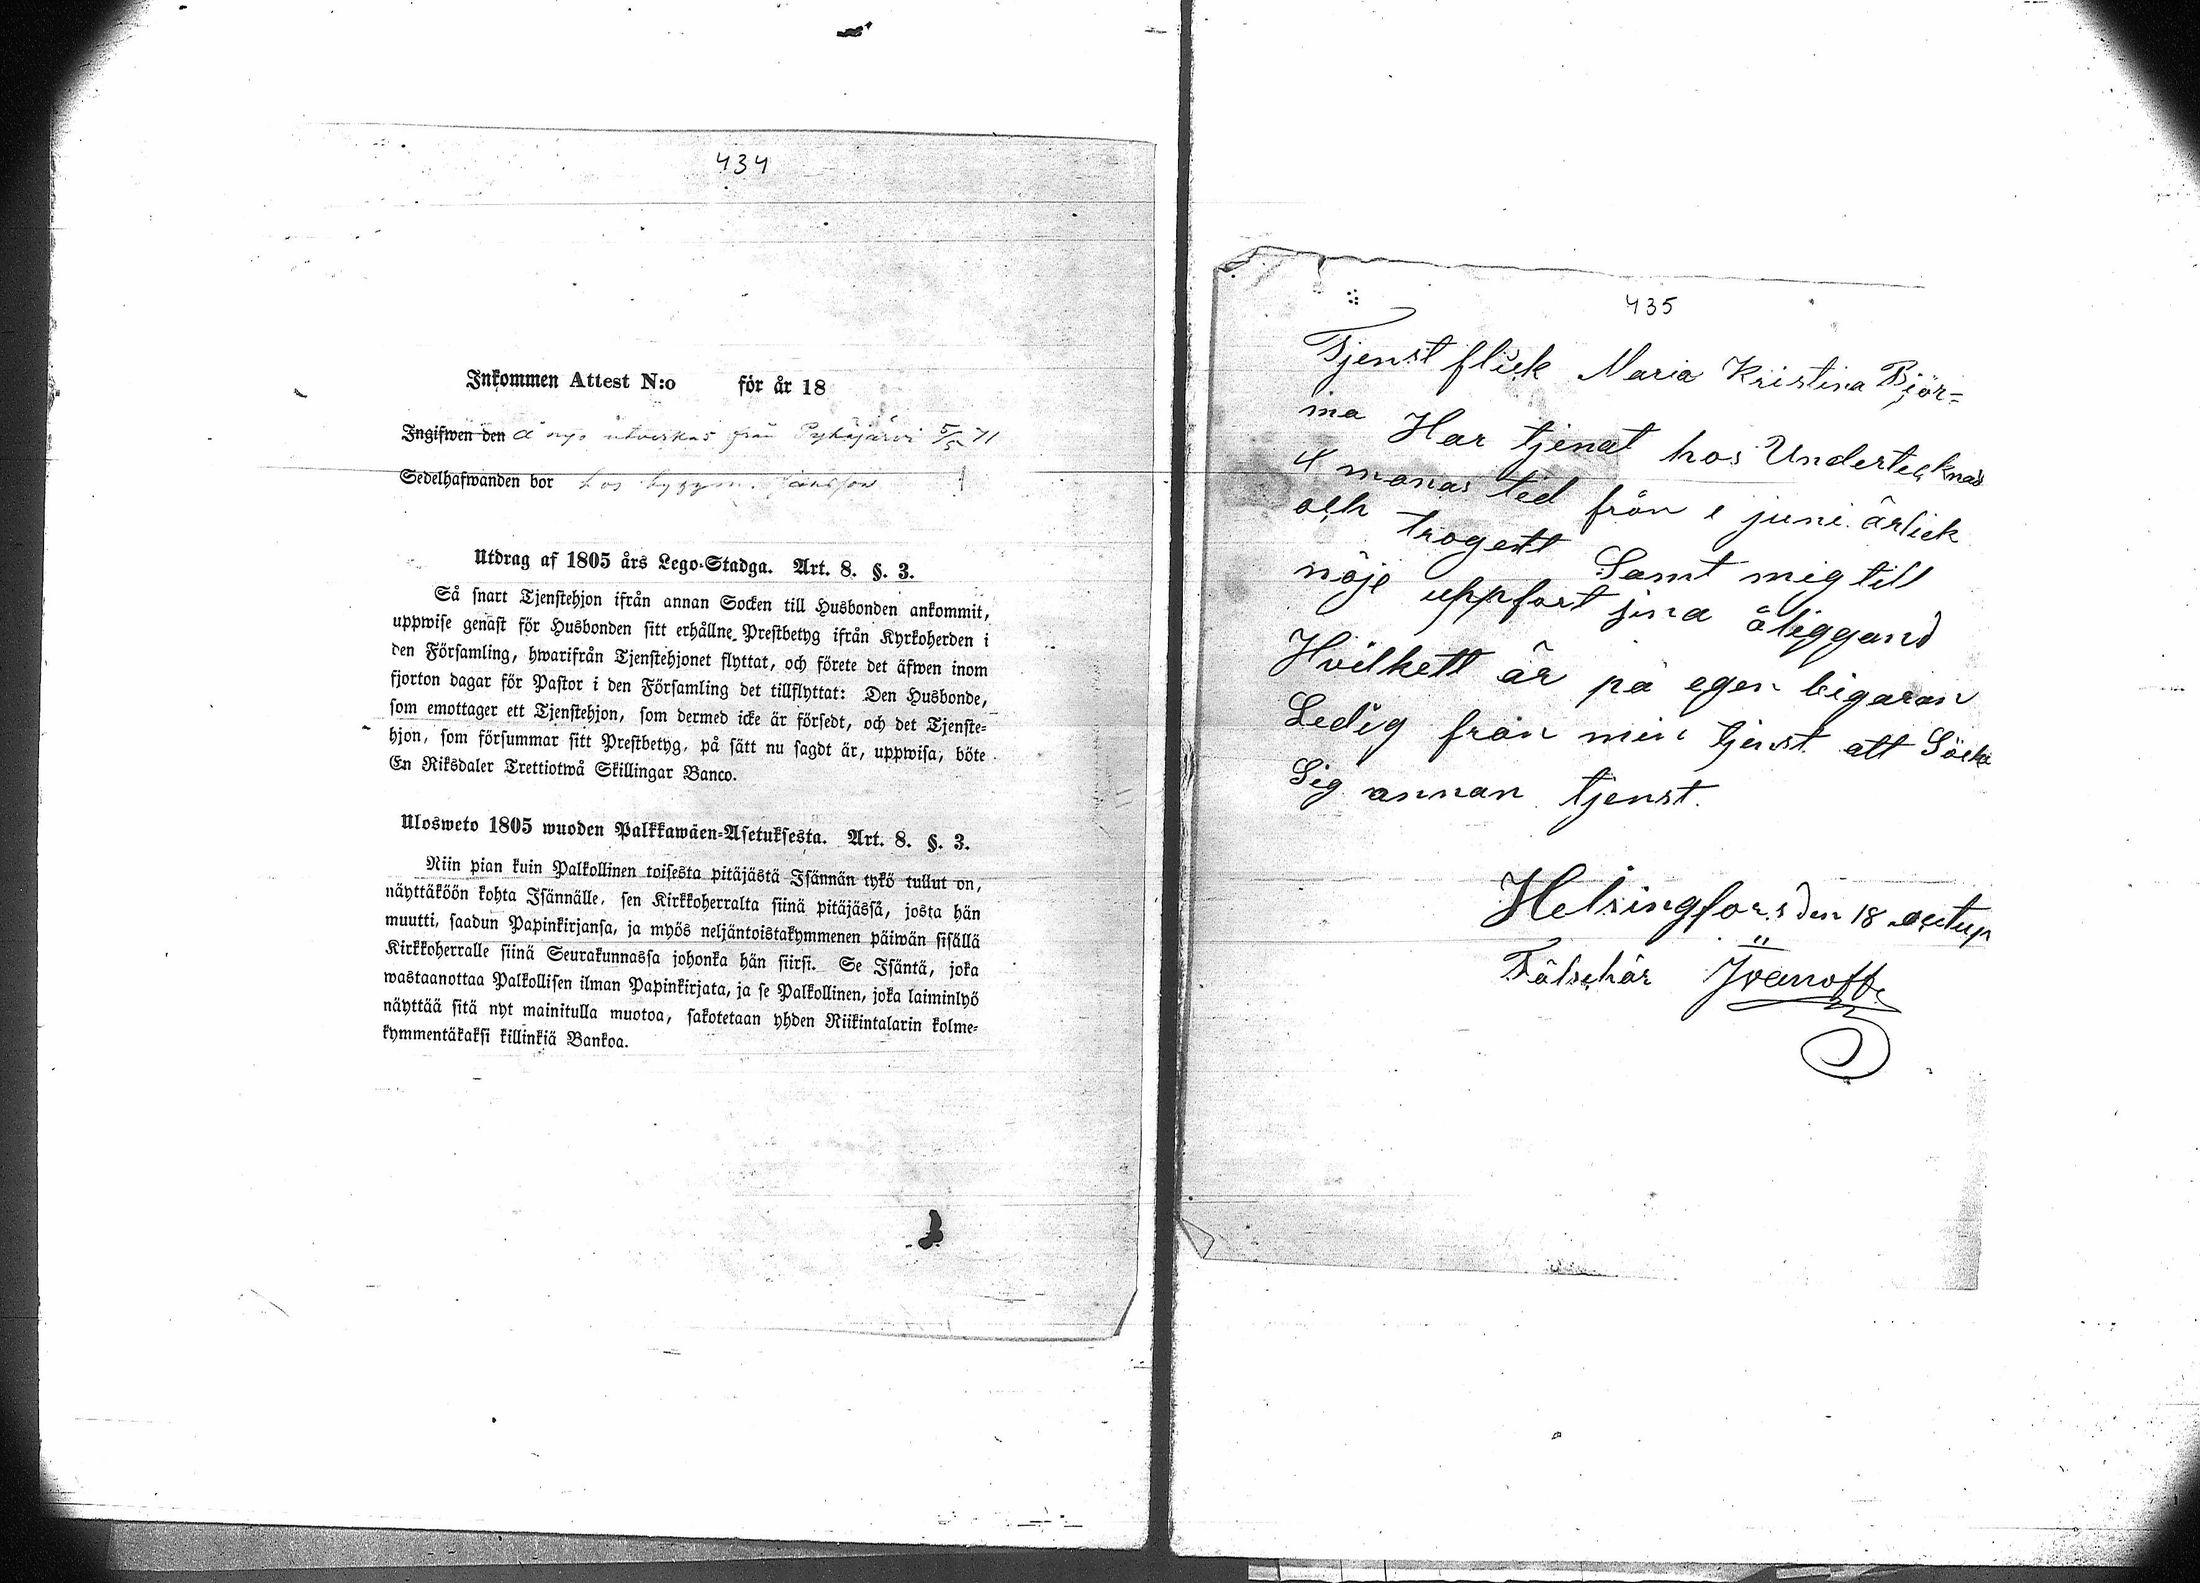 434
Inkommen Attest N:o för år 18
Ingifwen den å nyo utverkas från Pyhäjärvi 5/5 71
Sedelhafwanden bor hos byggm.
Utdrag af 1805 års Lego-Stadga. Art. 8. §. 3.
Så snart Tjenstehjon ifrån annan Socken till Husbonden ankommit,
uppwise genast för Husbonden sitt erhållne Prestbetyg ifrån Kyrkoherden i
den Församling, hwarifrån Tjenstehjonet flyttat, och förete det äfwen inom
fjorton dagar för Pastor i den Församling det tillflyttat: Den Husbonde,
som emottager ett Tjenstehjon, som dermed icke är försedt, och det Tjenste-
hjon, som försummar sitt Prestbetyg, på sätt nu sagdt är, uppwisa, böte
En Riksdaler Trettiotwå Skillingar Banco.
Ulosweto 1805 wuoden Palkkawäen-Asetuksesta. Art. 8. §. 3.
Niin pian kuin Palkollinen toisesta pitäjästä Isännän tykö tullut on,
näyttäköön kohta Isännälle, sen Kirkkoherralta siinä pitäjässä, josta hän
muutti, saadun Papinkirjansa, ja myös neljäntoistakymmenen päiwän sisällä
Kirkkoherralle siinä Seurakunnassa johonka hän siirsi. Se Isäntä, joka
wastaanottaa Palkollisen ilman Papinkirjata, ja se Palkollinen, joka laiminlyö
näyttää sitä nyt mainitulla muotoa, sakotetaan yhden Riikintalarin kolme-
kymmentäkaksi killinkiä Bankoa.
435
Tjenst flick Maria Kristina Björ=
ma Har tjenat hos Undertecknad
4 manas tid från 1 juni ärlick
och trogentt Samt mig till
nöje uppfort sina åliggand
Hvilkett är på egen bigäran
Ledig från min tjenst att Söcka
Sig annan tjenst.
Helsingfors den 18 octup
Fältschär Ivanoff